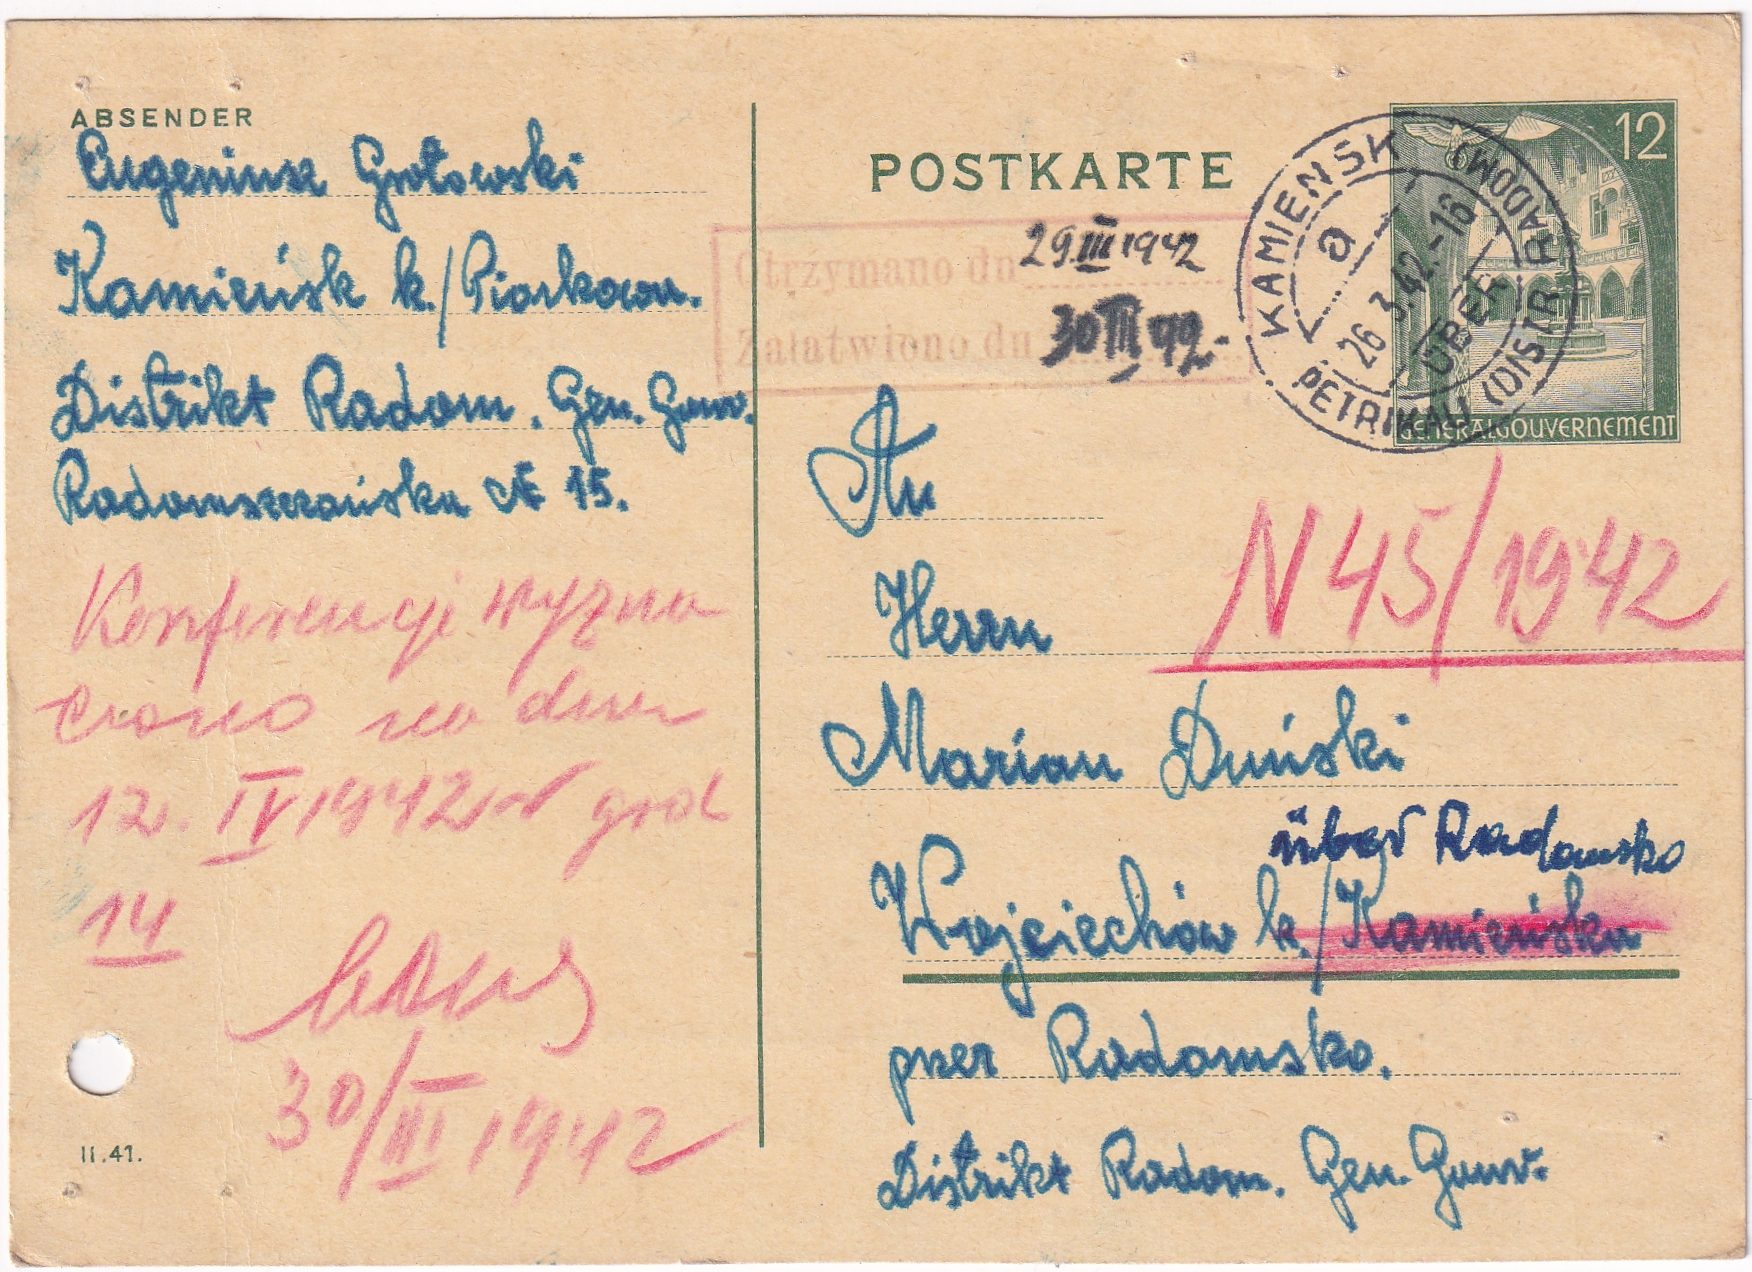 ABSENDER
Eugeniusz Grotowski
Kamieńsk k./Piotrkowa.
Distrikt Radom. Gen. Gouv.
Radomszczańska № 15.
Konferencję wyzna
czono na dzień
12. IV 1942 r godz
14
30/III 1942
II.41.
POSTKARTE
12
GENERALGOUVERNEMENT
KAMIENSK
ÜBER
PETRIKAU (DISTR RADOM)
a
26.3.42.-16
Otrzymano dn. 29 III 1942
Załatwiono dn. 30 III 42.
An
N 45/1942
Herrn
Marian Duński
über Radomsko
Wojciechów k./Kamieńska
per Radomsko.
Distrikt Radom. Gen. Gouv.